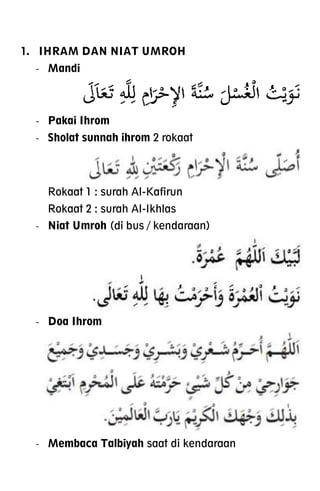 1. IHRAM DAN NIAT UMROH
- Mandi
نَوَيْتُ الْغُسْلَ سُنَّةَ الْإِحْرَامِ لِلَّهِ تَعَالَى
- Pakai Ihrom
- Sholat sunnah ihrom 2 rokaat
أُصَلِّى سُنَّةَ الْإِحْرَامِ رَكْعَتَيْنِ لِلَّهِ تَعَالَى
Rokaat 1 : surah Al-Kafirun
Rokaat 2 : surah Al-Ikhlas
- Niat Umroh (di bus / kendaraan)
لَبَّيْكَ اَللّٰهُمَّ عُمْرَةً.
نَوَيْتُ الْعُمْرَةَ وَأَحْرَمْتُ بِهَا لِلّٰهِ تَعَالَى.
- Doa Ihrom
اَللّٰهُمَّ أُحَرِّمُ شَعْرِيْ وَبَشَرِيْ وَجَسَدِيْ وَجَمِيْعَ
جَوَارِحِيْ مِنْ كُلِّ شَيْئٍ حَرَّمْتَهُ عَلَى الْمُحْرِمِ أَبْتَغِيْ
بِذٰلِكَ وَجْهَكَ الْكَرِيْمَ يَارَبَّ الْعَالَمِيْنَ.
- Membaca Talbiyah saat di kendaraan